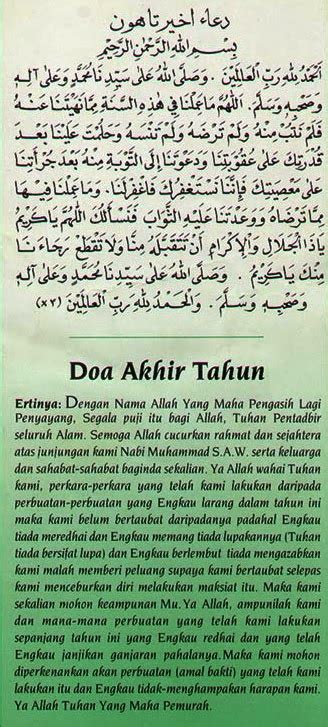 دعاء اخير تاهون
بِسْمِ اللهِ الرَّحْمٰنِ الرَّحِيْمِ
اَلْحَمْدُ لِلّٰهِ رَبِّ الْعَالَمِيْنَ . وَصَلَّى اللهُ عَلَى سَيِّدِنَا مُحَمَّدٍ وَعَلَى آلِهِ
وَصَحْبِهِ وَسَلَّمَ . اَللّٰهُمَّ مَا عَمِلْنَا فِي هٰذِهِ السَّنَةِ مِمَّا نَهَيْتَنَا عَنْهُ
فَلَمْ نَتُبْ مِنْهُ وَلَمْ تَرْضَهُ وَلَمْ تَنْسَهُ وَحَلُمْتَ عَلَيْنَا بَعْدَ
قُدْرَتِكَ عَلَى عُقُوْبَتِنَا وَدَعَوْتَنَا اِلَى التَّوْبَةِ مِنْهُ بَعْدَ جُرْأَتِنَا
عَلَى مَعْصِيَتِكَ فَاِنَّا نَسْتَغْفِرُكَ فَاغْفِرْلَنَا . وَمَا عَمِلْنَا فِيْهَا
مِمَّا تَرْضَاهُ وَوَعَدْتَنَا عَلَيْهِ الثَّوَابَ فَنَسْأَلُكَ اللّٰهُمَّ يَا كَرِيْمُ
يَاذَا الْجَلَالِ وَالْاِكْرَامِ اَنْ تَتَقَبَّلَهُ مِنَّا وَلَا تَقْطَعْ رَجَاءَنَا
مِنْكَ يَا كَرِيْمُ . وَصَلَّى اللهُ عَلَى سَيِّدِنَا مُحَمَّدٍ وَعَلَى آلِهِ
وَصَحْبِهِ وَسَلَّمَ . وَالْحَمْدُ لِلّٰهِ رَبِّ الْعَالَمِيْنَ (٣×)
Doa Akhir Tahun
Ertinya: Dengan Nama Allah Yang Maha Pengasih Lagi
Penyayang, Segala puji itu bagi Allah, Tuhan Pentadbir
seluruh Alam. Semoga Allah cucurkan rahmat dan sejahtera
atas junjungan kami Nabi Muhammad S.A.W. serta keluarga
dan sahabat-sahabat baginda sekalian. Ya Allah wahai Tuhan
kami, perkara-perkara yang telah kami lakukan daripada
perbuatan-perbuatan yang Engkau larang dalam tahun ini
maka kami belum bertaubat daripadanya padahal Engkau
tiada meredhai dan Engkau memang tiada lupakannya (Tuhan
tiada bersifat lupa) dan Engkau berlembut tiada mengazabkan
kami malah memberi peluang supaya kami bertaubat selepas
kami menceburkan diri melakukan maksiat itu. Maka kami
sekalian mohon keampunan Mu.Ya Allah, ampunilah kami
dan mana-mana perbuatan yang telah kami lakukan
sepanjang tahun ini yang Engkau redhai dan yang telah
Engkau janjikan ganjaran pahalanya.Maka kami mohon
diperkenankan akan perbuatan (amal bakti) yang telah kami
lakukan itu dan Engkau tidak-menghampakan harapan kami.
Ya Allah Tuhan Yang Maha Pemurah.